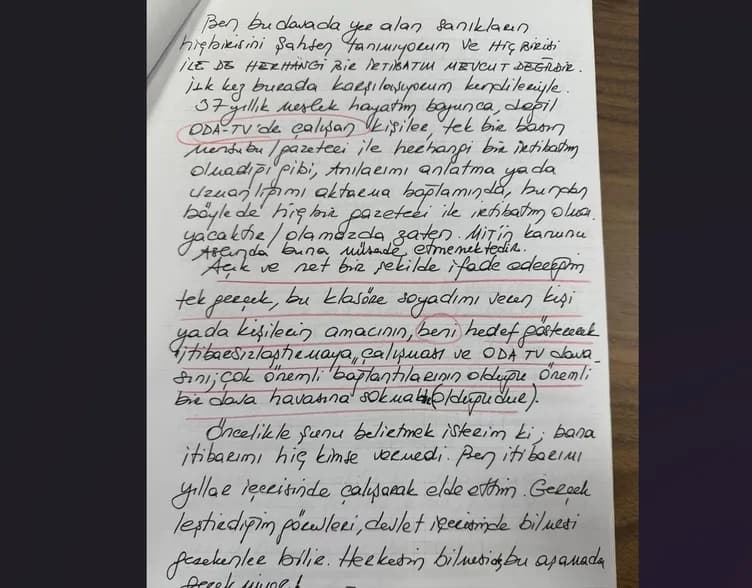 Ben bu davada yer alan sanıkların
hiçbirisini şahsen tanımıyorum ve HİÇ BİRİSİ
İLE DE HERHANGİ BİR İRTİBATIM MEVCUT DEĞİLDİR.
İlk kez burada karşılaşıyorum kendileriyle.
37 yıllık meslek hayatım boyunca, değil
ODA-TV'de çalışan kişiler, tek bir basın
mensubu/gazeteci ile herhangi bir irtibatım
olmadığı gibi, Anılarımı anlatma yada
uzmanlığımı aktarma bağlamında, bundan
böyle de hiç bir gazeteci ile irtibatım olma
yacaktır/olamazda zaten. MİT'in kanunu
Aslında buna müsade etmemektedir.
Açık ve net bir şekilde ifade edeceğim
tek gerçek, bu klasöre soyadımı veren kişi
yada kişilerin amacının, beni hedef göstererek
itibarsızlaştırmaya, çalışması ve ODA TV dava-
sını; çok önemli bağlantılarının olduğu önemli
bir dava havasına sokmak (olduğudur).
Öncelikle şunu belirtmek isterim ki; bana
itibarımı hiç kimse vermedi. Ben itibarımı
yıllar içerisinde çalışarak elde ettim. Gerçek
leştirdiğim görevleri, devlet içerisinde bilmesi
gerekenler bilir. Herkesin bilmesi de bu aşamada